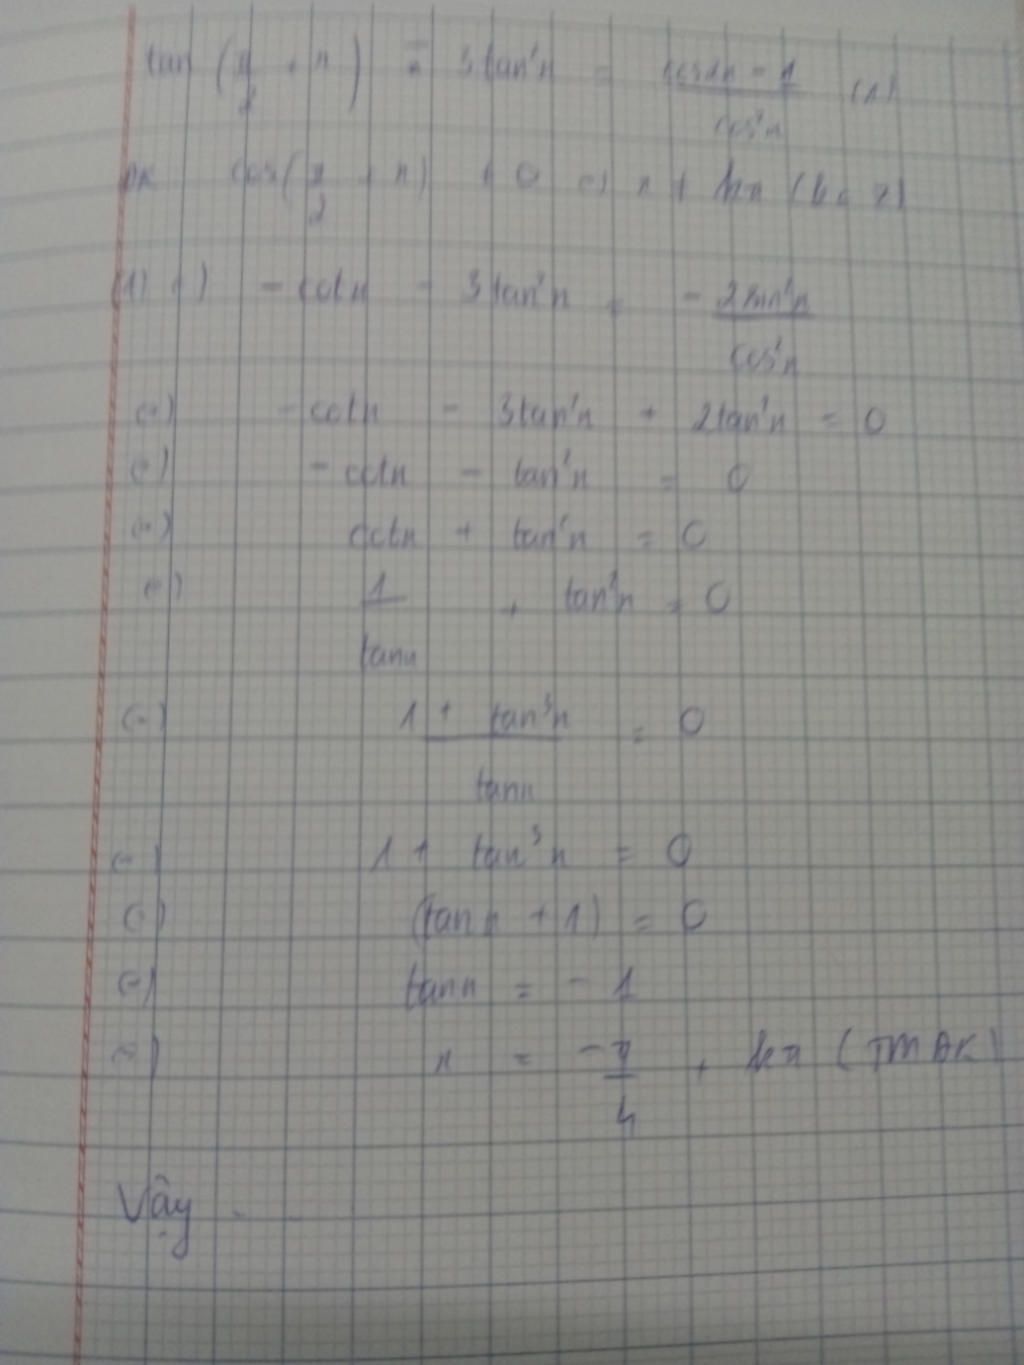 tan (π/2 + x) - 3tan²x = (cos2x - 1)/cos²x (1)
ĐK cos(π/2 + x) ≠ 0 <=> x ≠ kπ (k ∈ Z)
(1) <=> - cotx - 3tan²x = - 2sin²x/cos²x
<=> - cotx - 3tan²x + 2tan²x = 0
<=> - cotx - tan²x = 0
<=> cotx + tan²x = 0
<=> 1/tanx + tan²x = 0
<=> (1 + tan³x)/tanx = 0
<=> 1 + tan³x = 0
<=> (tanx + 1) = 0
<=> tanx = - 1
<=> x = -π/4 + kπ (TMĐK)
Vậy . .